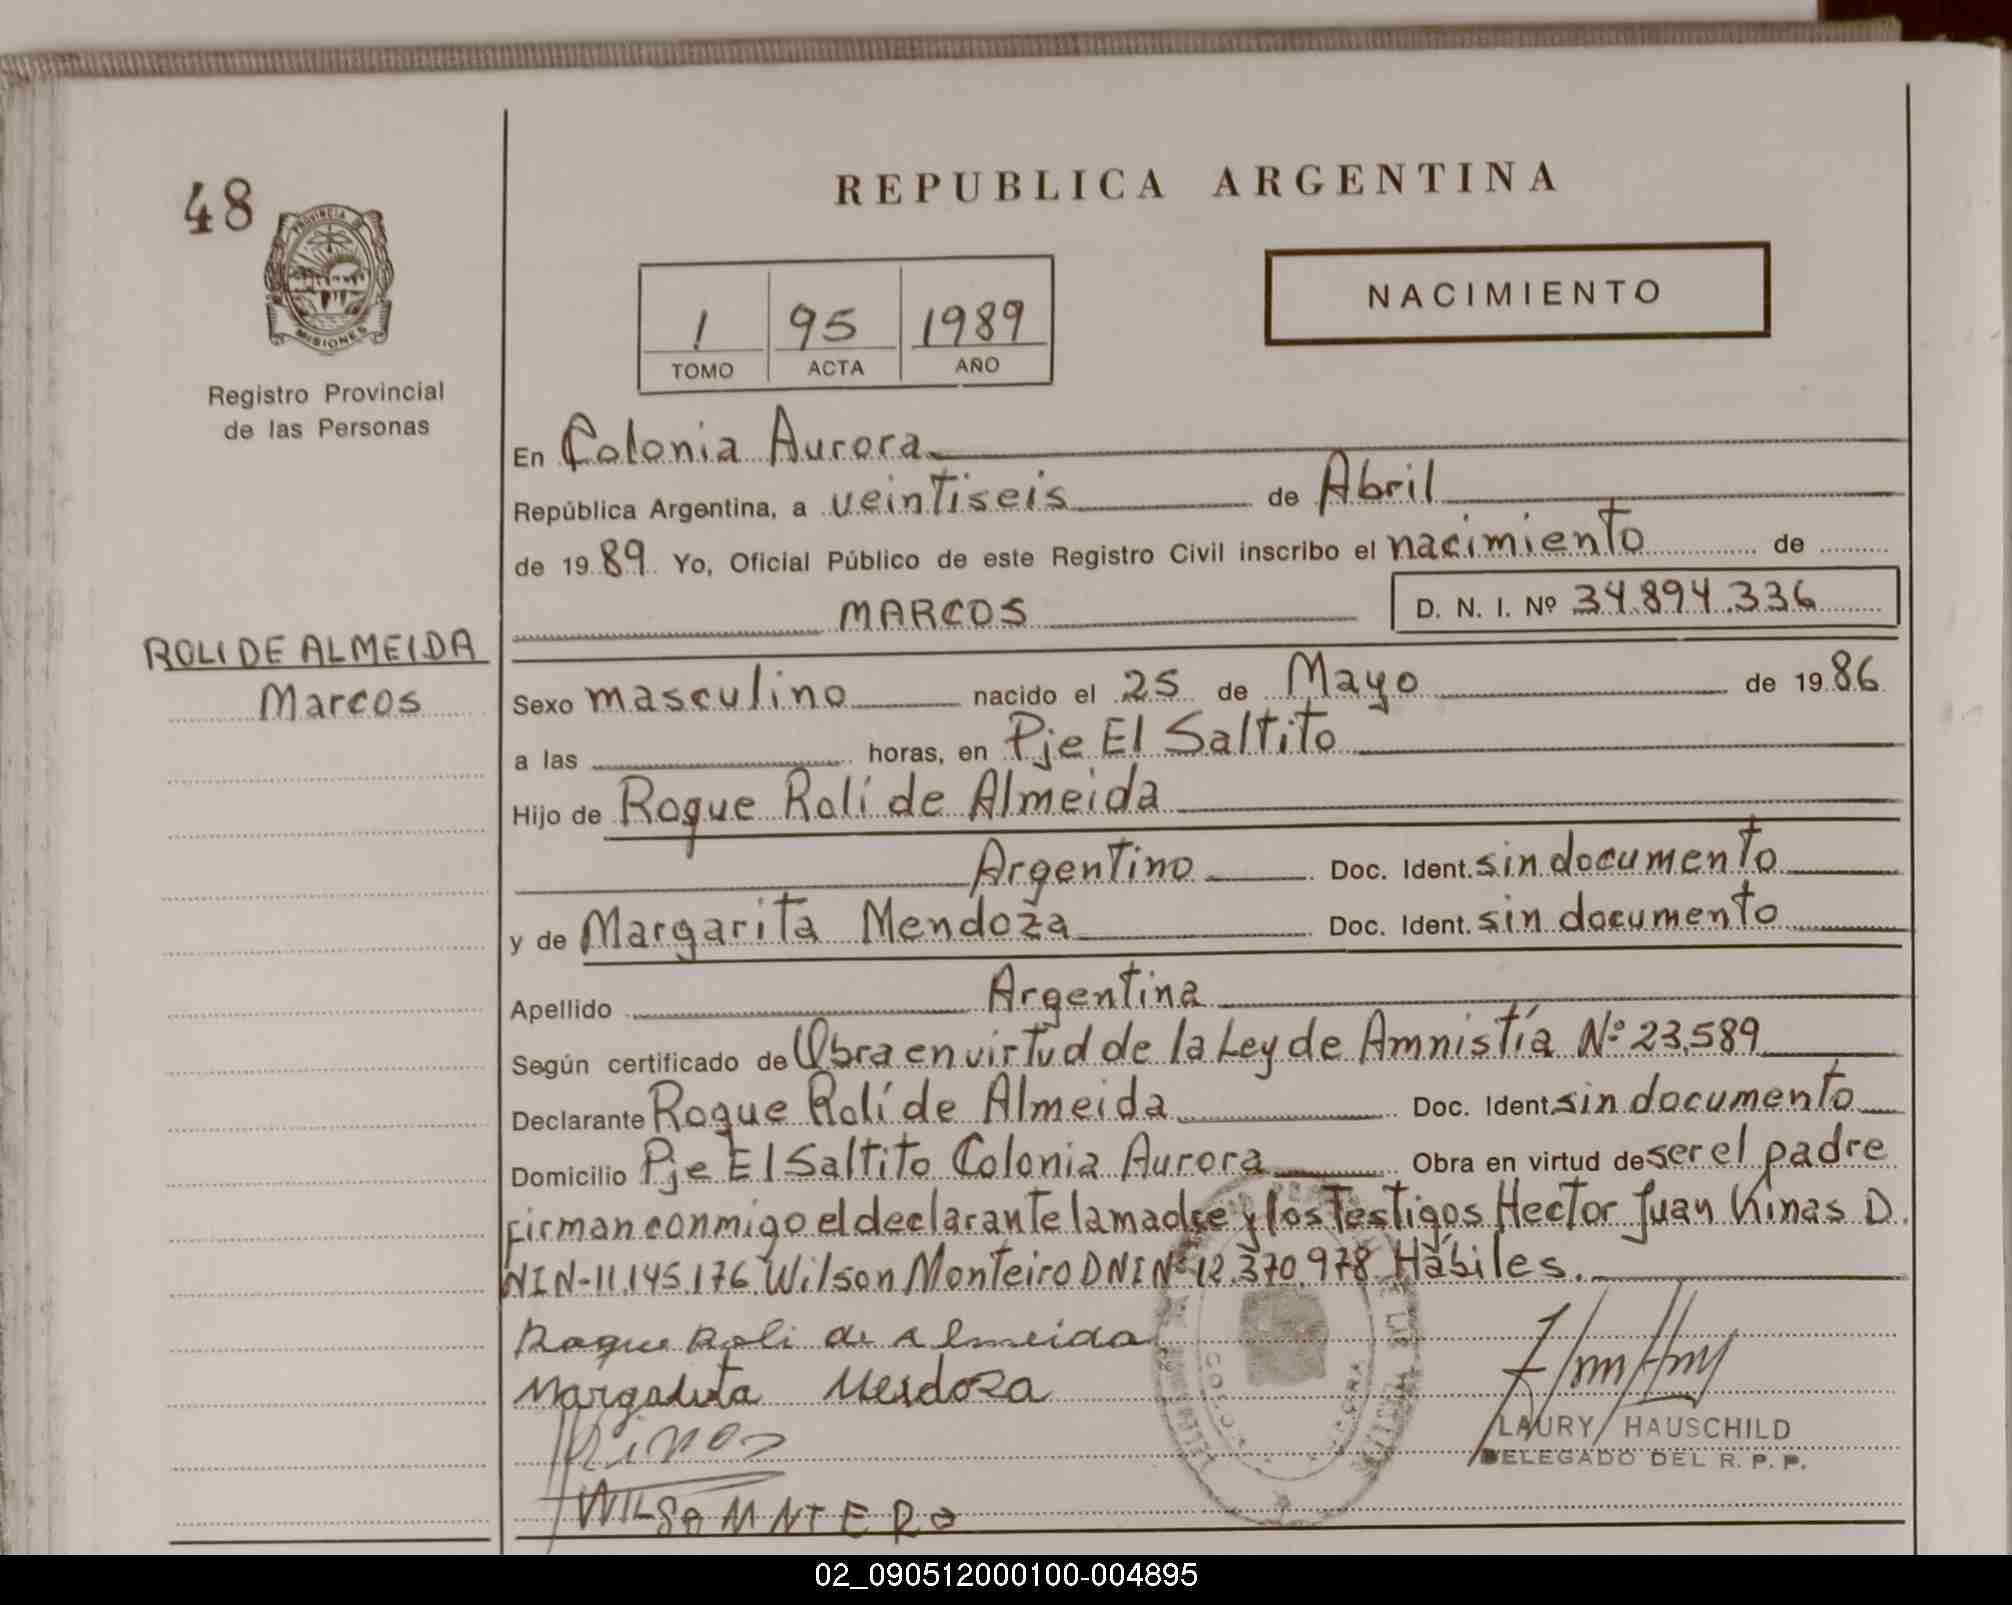 48
PROVINCIA DE
MISIONES
Registro Provincial
de las Personas
REPUBLICA ARGENTINA
1 95 1989
TOMO ACTA AÑO
NACIMIENTO
En Colonia Aurora
República Argentina, a veintiseis de Abril
de 1989 Yo, Oficial Público de este Registro Civil inscribo el nacimiento de
MARCOS D. N. I. Nº 34.894.336
ROLI DE ALMEIDA
Marcos
Sexo masculino nacido el 25 de Mayo de 1986
a las horas, en Pje El Saltito
Hijo de Roque Rolí de Almeida
Argentino Doc. Ident. sin documento
y de Margarita Mendoza Doc. Ident. sin documento
Apellido Argentina
Según certificado de Obra en virtud de la Ley de Amnistía Nº 23.589
Declarante Roque Rolí de Almeida Doc. Ident. sin documento
Domicilio Pje El Saltito Colonia Aurora Obra en virtud de ser el padre
firman conmigo el declarante la madre y los Testigos Hector Juan Kinas D.
NI N-11.145.176. Wilson Monteiro DNI Nº 12.370.978 Hábiles.
Roque Roli de Almeida
Margarita Mendoza
Kinas
WILSO MNTERO
LAURY HAUSCHILD
DELEGADO DEL R. P. P.
02_090512000100-004895